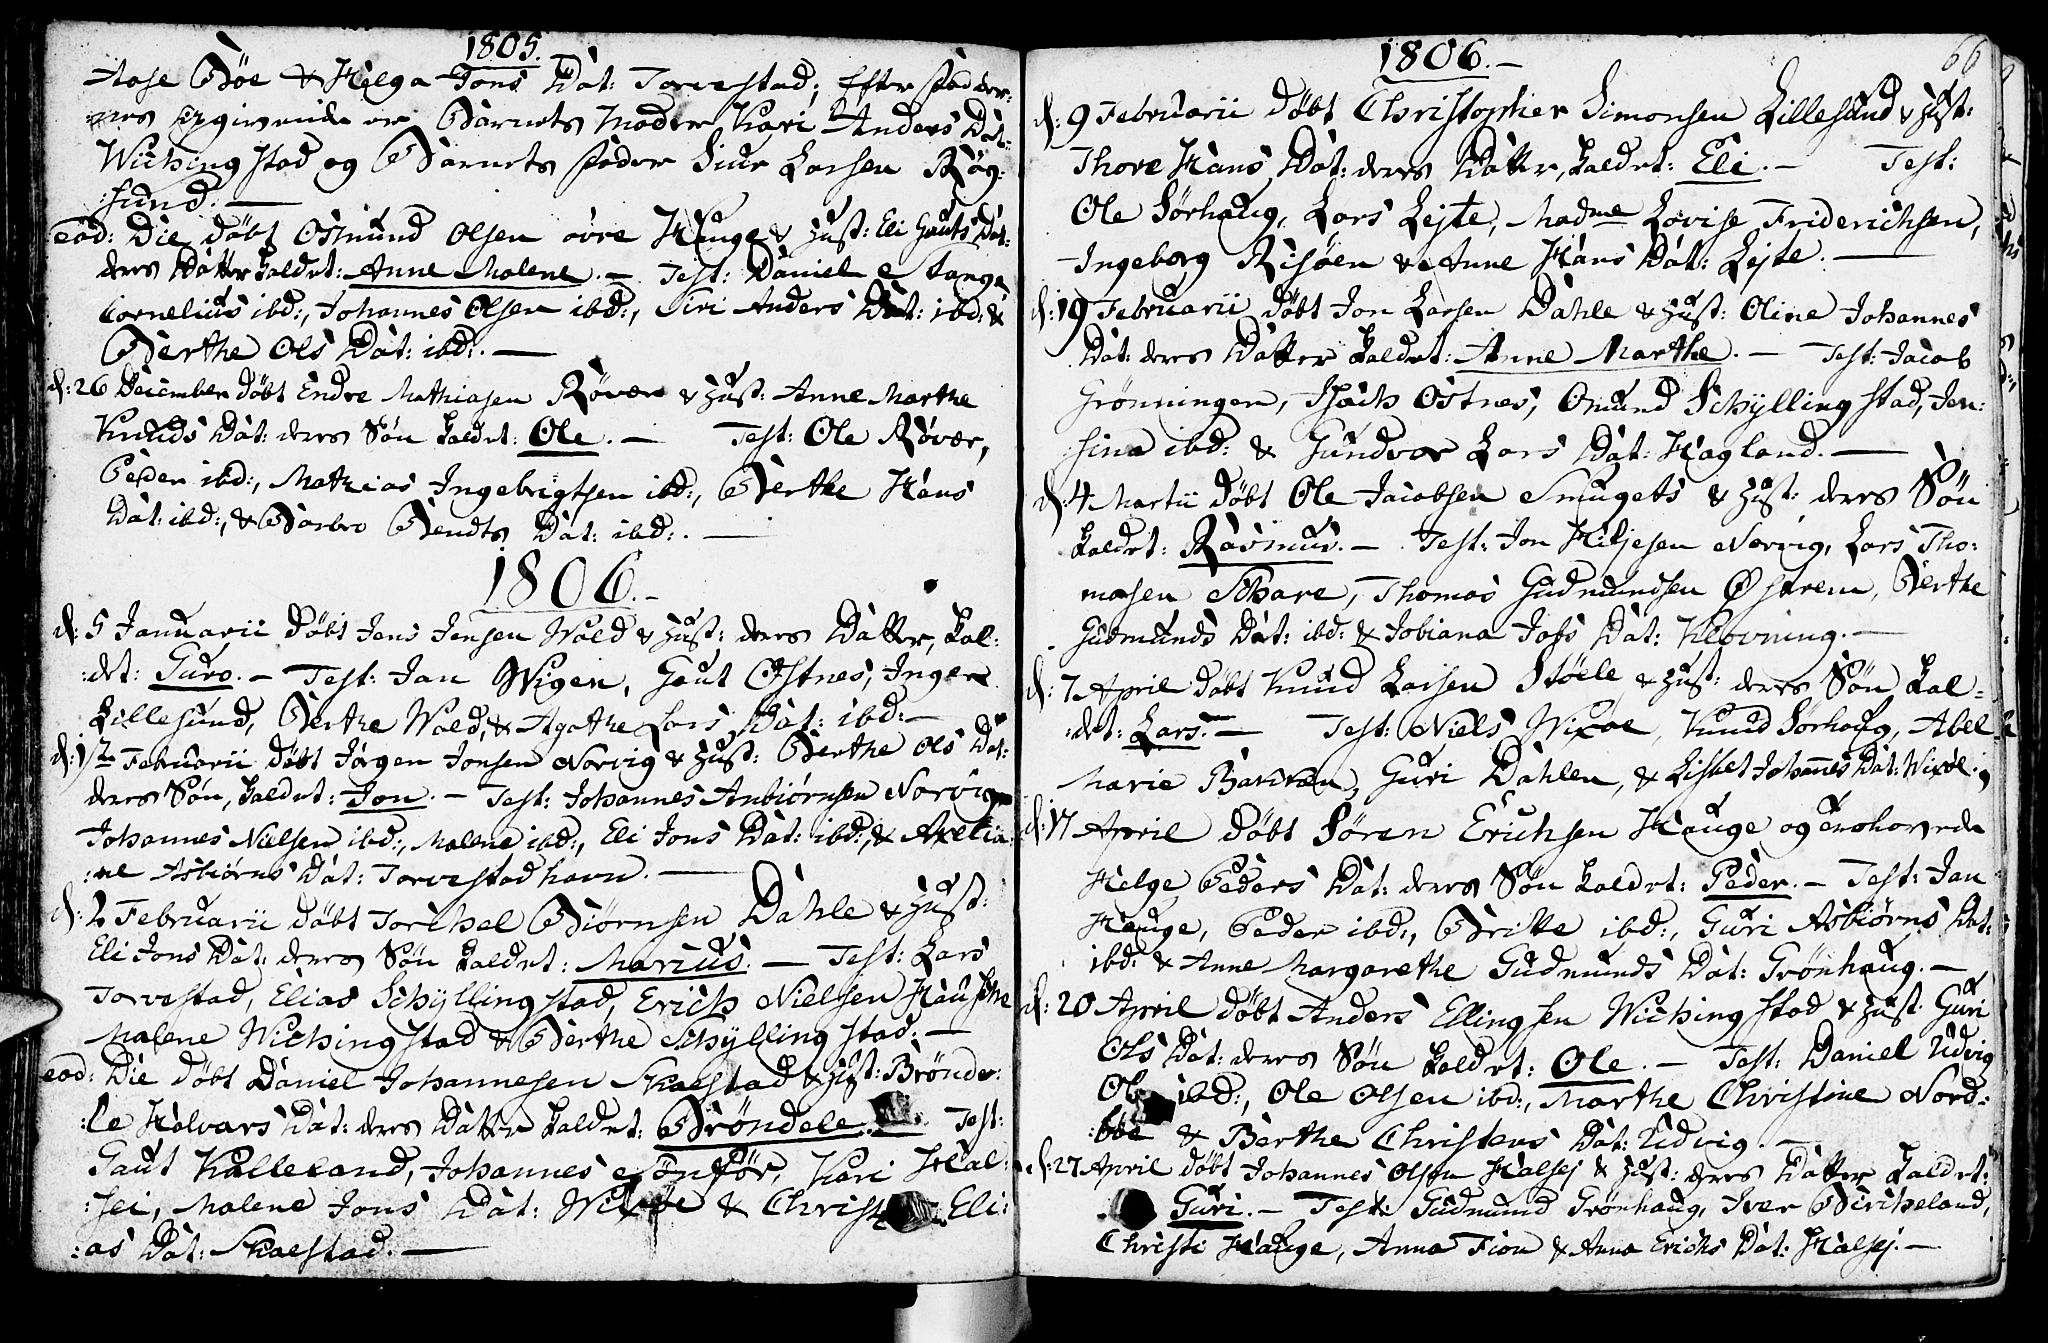 1805.
Aase Bøe & Helga Jons Dat: Torvestad; Efter Fadder-
nes Udgivende er Barnets Moder Kari Anders Dat:
Wichingstad og Barnets Fader Siur Larsen Røg:
:sund. —
eod: Die døbt Osmund Olsen øvre Hauge & Hust: Eli Gauts Dat:
deres Datter kaldet: Anne Malene. — Test: Daniel Tange
Cornelius ibd:, Johannes Olsen ibd:, Siri Anders Dat: ibd: &
Berthe Ols Dat: ibd:. —
d: 26 December døbt Endre Mathiasen Røvær & Hust: Anne Marthe
Knuds Dat: deres Søn kaldet: Ole. — Test: Ole Røvær,
Peder ibd:, Mathias Ingebrigtsen ibd:, Berthe Hans
Dat: ibd:, & Barbro Bendts Dat: ibd:. —
1806. -
d: 5 Januarii døbt Jens Jensen Wold & Hust: deres Datter, kal:
:det: Guro. — Test: Jan Wigen, Gaut Ostnes, Inger
Lillesund, Berthe Wold, & Agathe Lars Dat: ibd: —
Februarii døbt Jørgen Jonsen Norvig & Hust: Berthe Ols Dat:
deres Søn, kaldet: Jon. — Test: Johannes Anbiørnsen Norvig
Johannes Nielsen ibd:, Malene ibd:, Eli Jons Dat: ibd:, & Axelia:
:ne Asbiørns Dat: Torvestadhavn. —
d: 2 Februarii døbt Torchel Biørnsen Dahle & Hust:
Eli Jons Dat: deres Søn kaldet: Marius. — Test: Lars
Torvestad, Elias Schyllingstad, Erich Nielsen Hauske
Malene Wichingstad & Berthe Schyllingstad. —
eod: Die døbt Daniel Johannesen Skaestad & Hust: Brønde:
:le Halvars Dat: deres Datter kaldet: Brøndele. Test:
Gaut Kalleland, Johannes Sønfør, Kari Hal:
:sei, Malene Jons Dat: & Christ Eli:
:as Dat: Skaestad. —
1806. - 66
d: 9 Februarii døbt Christopher Simonsen Lillesund & Hust:
Thore Hans Dat: deres Datter, kaldet: Eli. — Test:
Ole Sørhaug, Lars Lejte, Madme Lovise Friderichsen,
Ingeborg Risøen & Anne Hans Dat: Lejte. —
d: 19 Februarii døbt Jon Larsen Dahle & Hust: Oline Johannes
Dat: deres Datter kaldet: Anne Marthe. — Test: Jacob
Grønningen, Isach Ostnes, Omund Schyllingstad, Jen:
:sina ibd: & Gundvor Lars Dat: Hagland. —
d: 4 Martii døbt Ole Jacobsen Smugets & Hust: deres Søn
kaldet: Rasmus. — Test: Jon Hiljesen Norvig, Lars Tho:
masen Skare, Thomas Gudmundsen Østrem, Berthe
Gudmunds Dat: ibd: & Jobiana Jobs Dat: Klovning. —
d: 7 April døbt Knud Larsen Støele & Hust: deres Søn kal:
:det: Lars. — Test: Niels Wixøe, Knud Sørhaug, Abel
Marie Dahlen, & Lisbet Johannes Dat: Wixøe.
d: 17 April døbt Søren Erichsen Hauge og Troelovede
Helge Peders Dat: deres Søn kaldet: Peder. — Test: Jan
Hauge, Peder ibd:, Britte ibd:, Guri Asbiørns Dat:
ibd: & Anne Margarethe Gudmunds Dat: Grønhaug. —
d: 20 April døbt Anders Ellingsen Wichingstad & Hust: Guri
Ols Dat: deres Søn kaldet: Ole. — Test: Daniel Udvig
Ole ibd:, Ole Olsen ibd:, Marthe Christine Nord:
:bøe & Berthe Christens Dat: Udvig. —
d: 27 April døbt Johannes Olsen Halsej & Hust: deres Datter kaldet:
Guri. — Test: Gudmund Grønhaug, Iver Bircheland,
Christi Hauge, Anna Fion & Anna Erichs Dat: Halsej. —